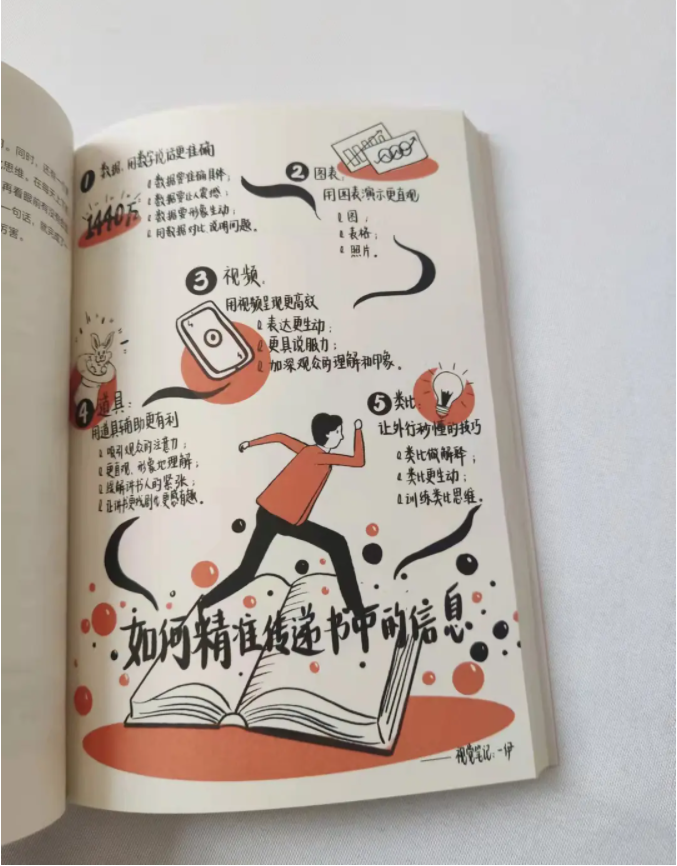 同时，还有一个
思维。在每天上下班
再看眼前有没有
一句话，就
厉害。
1 数据，用数字说话更准确
1440万
数据要准确具体；
数据要让人震撼；
数据要形象生动；
用数据对比说明问题。
2 图表，
用图表演示更直观
图；
表格；
照片。
3 视频，
用视频呈现更高效
表达更生动；
更具说服力；
加深观众的理解和印象。
4 道具：
用道具辅助更有利
吸引观众的注意力；
更直观、形象地理解；
缓解讲书人的紧张；
让讲书更戏剧化更感有趣。
5 类比：
让外行秒懂的技巧
类比做解释；
类比更生动；
训练类比思维。
如何精准传递书中的信息
视觉笔记：一伊